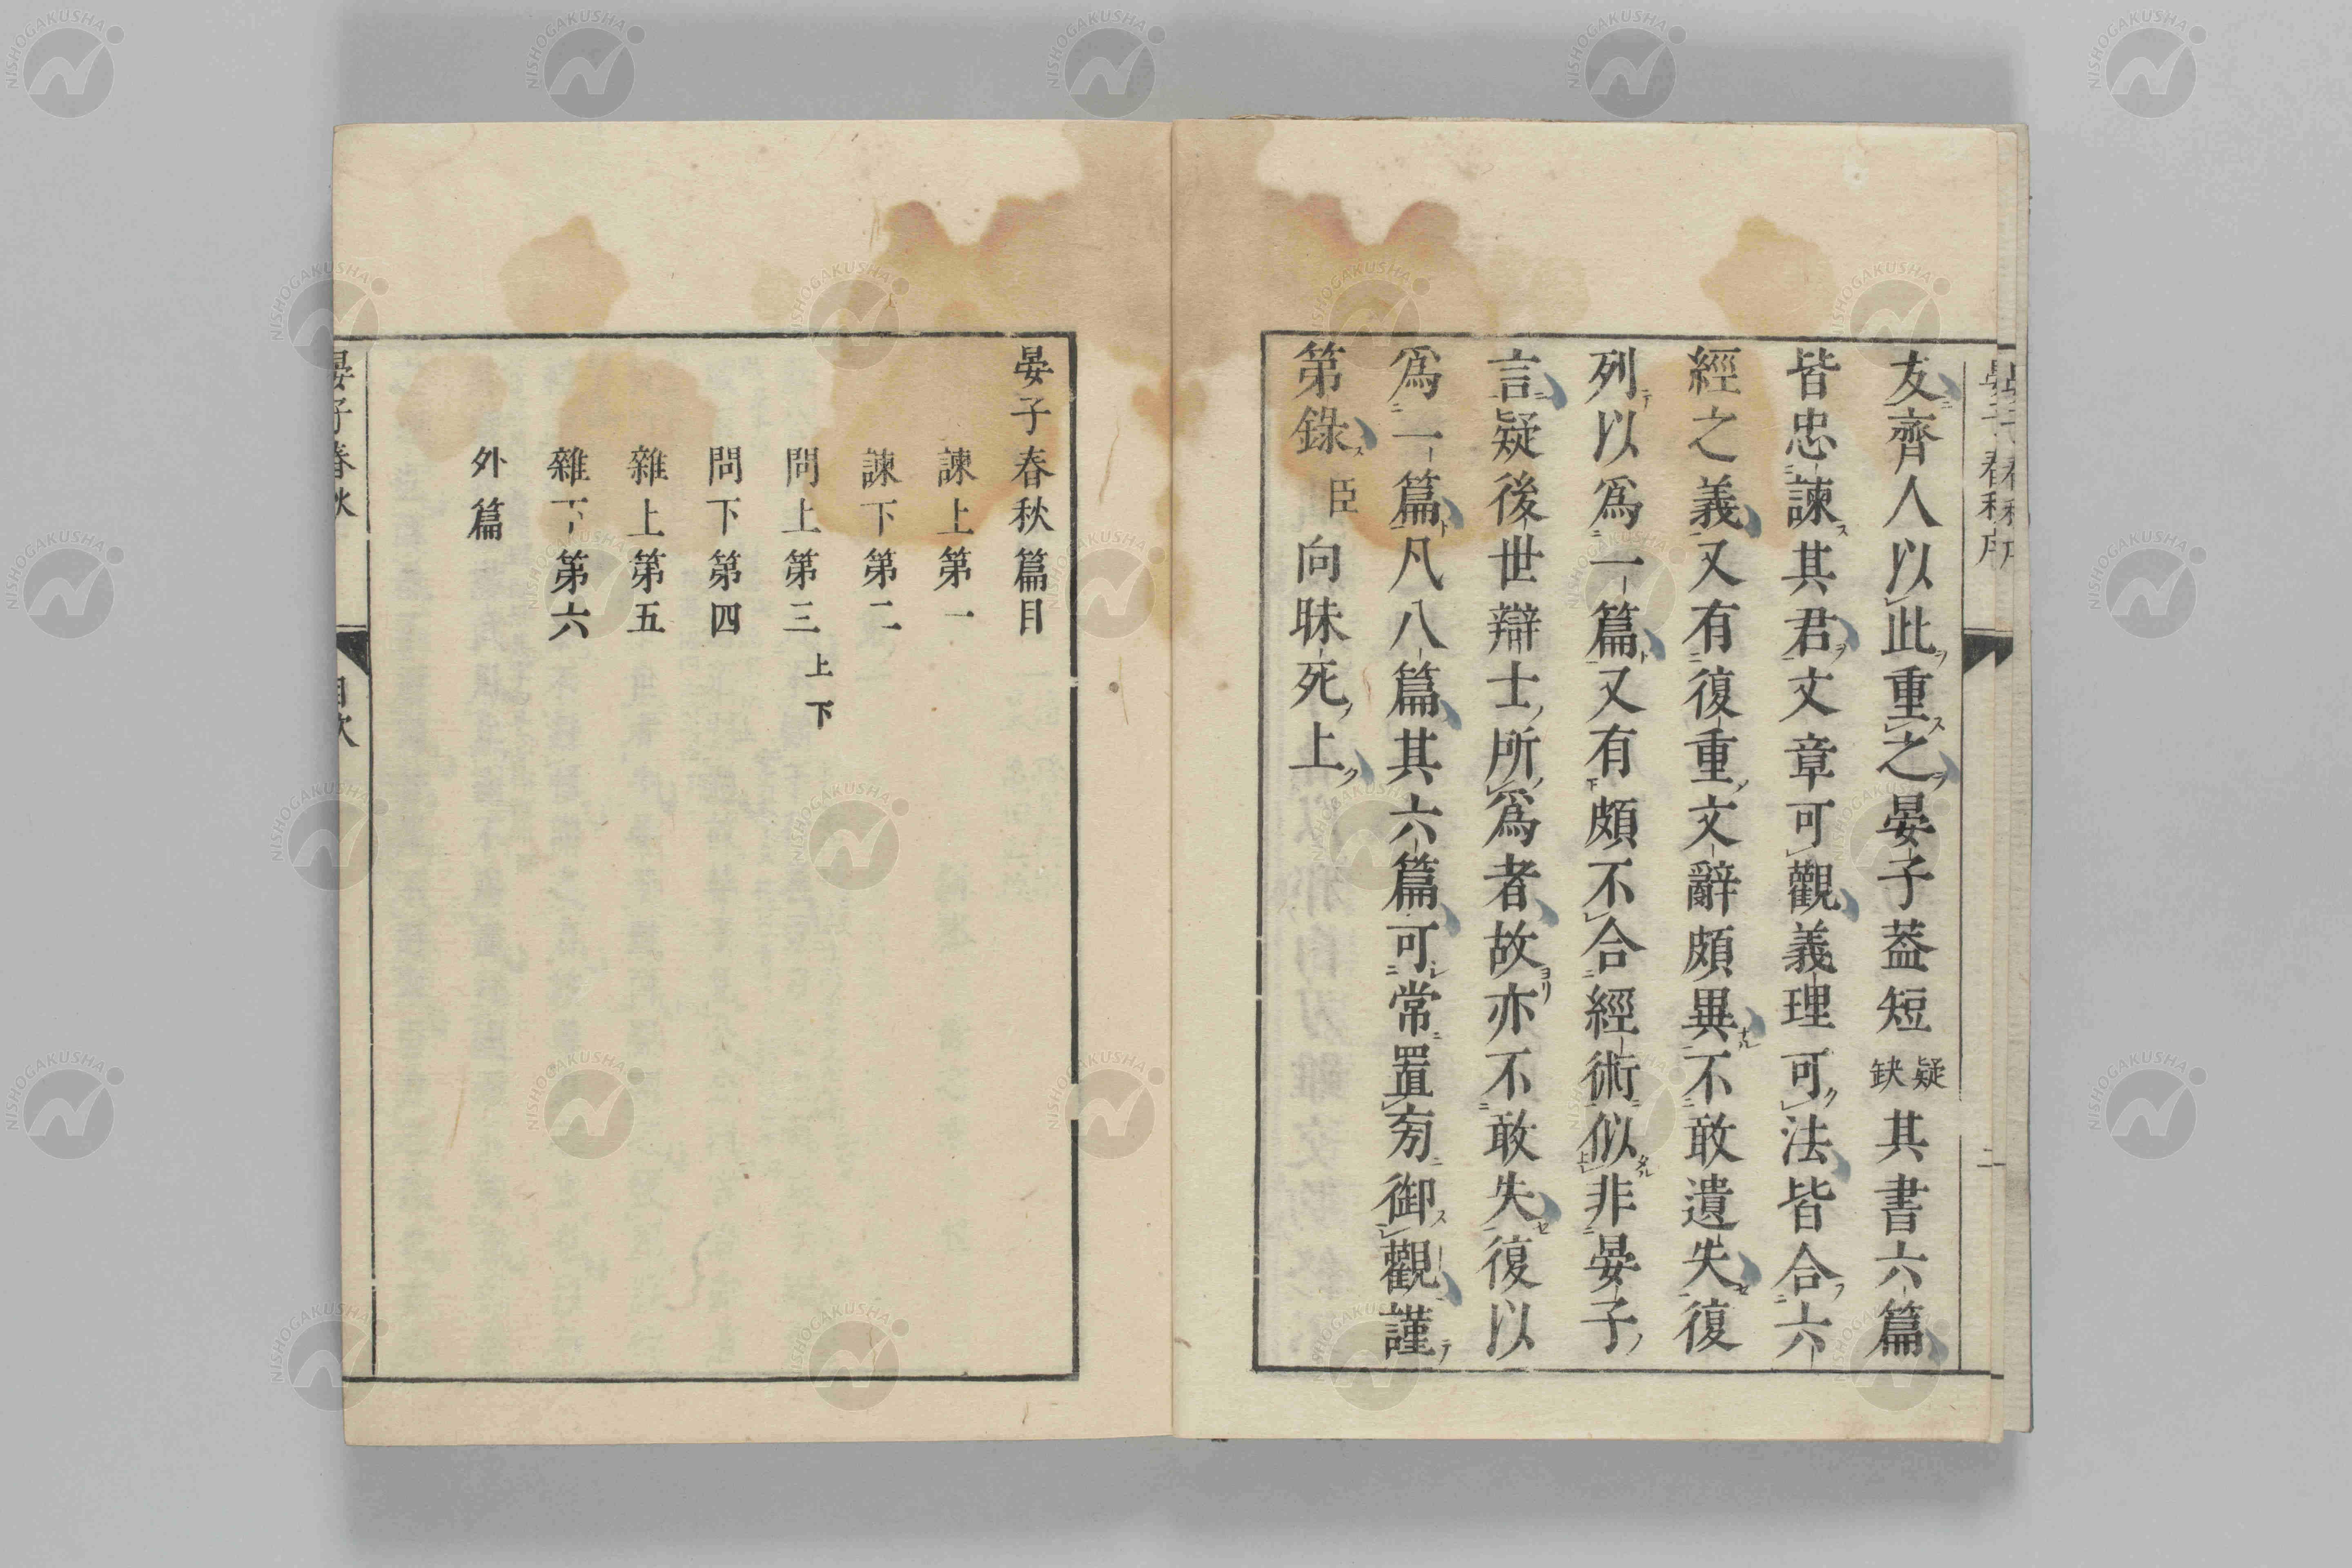 友齊人以此重之晏子蓋短疑缺其書六篇
皆忠諫其君文章可觀義理可法皆合六
經之義又有復重文辭頗異不敢遺失復
列以爲一篇又有頗不合經術似非晏子
言疑後世辯士所爲者故亦不敢失復以
爲一篇凡八篇其六篇可常置旁御觀謹
第錄臣向昧死上
晏子春秋篇目
諫上第一
諫下第二
問上第三上下
問下第四
雜上第五
雜下第六
外篇
晏子春秋 目次